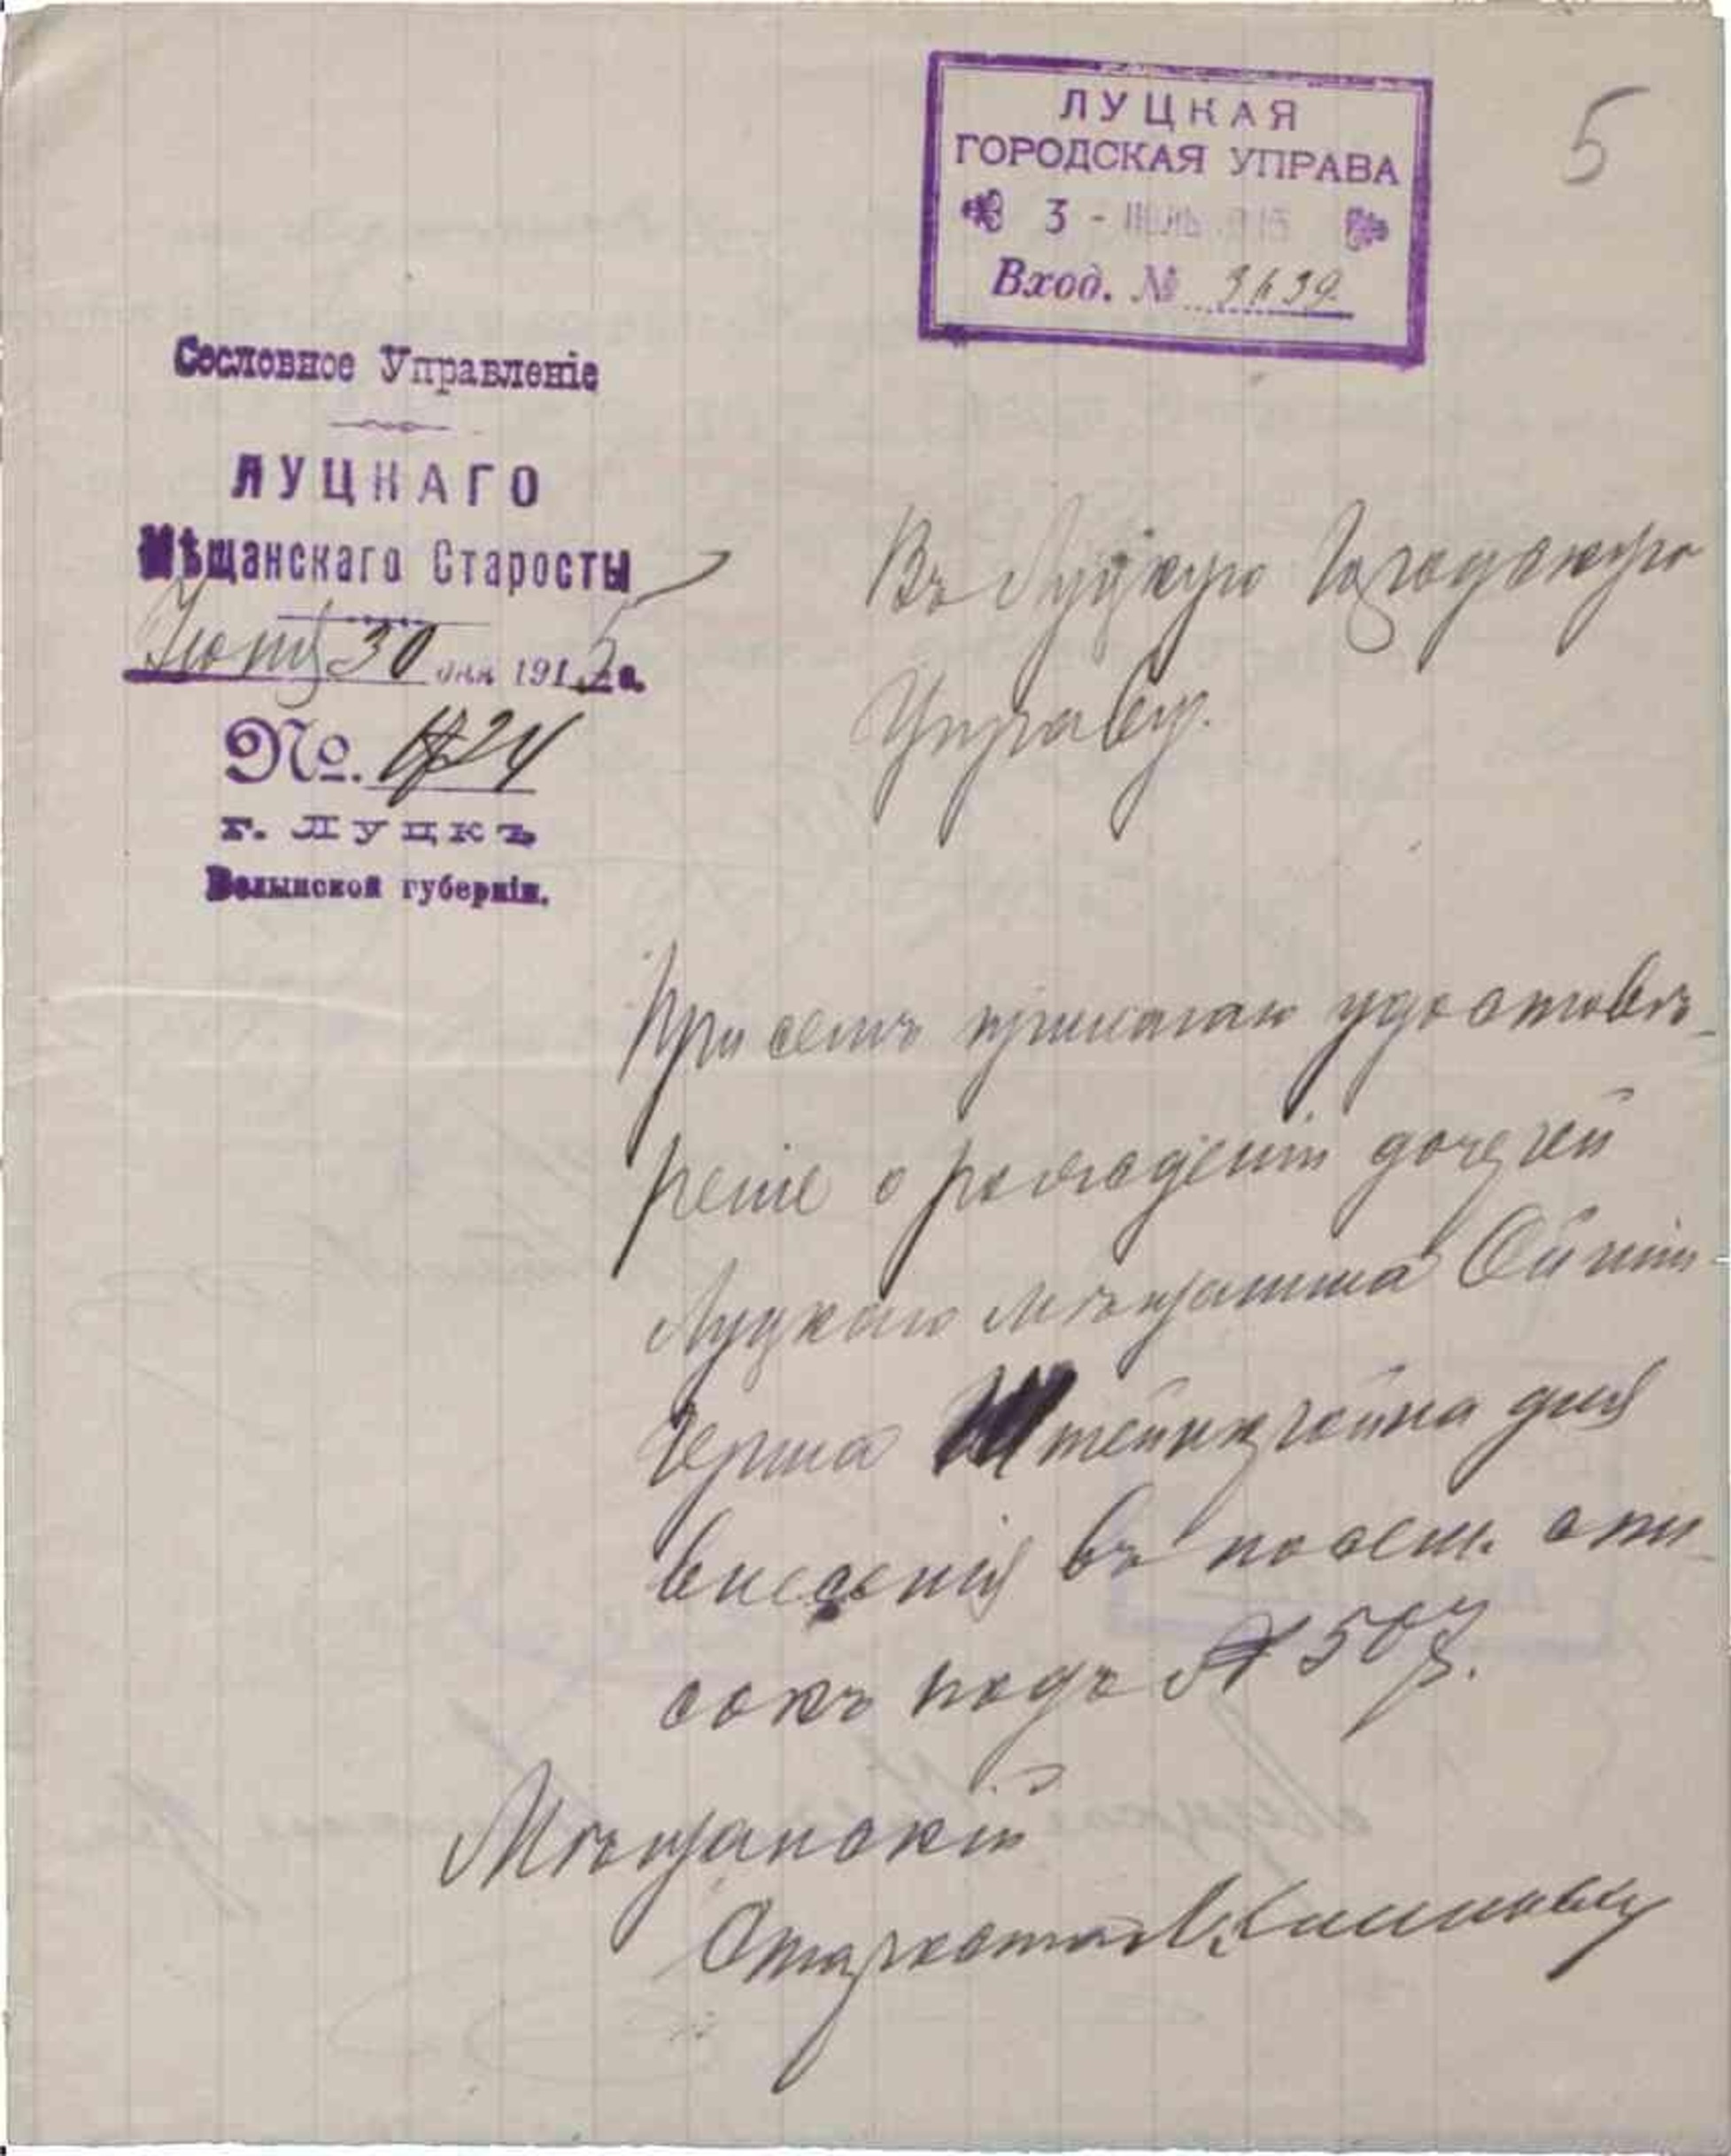 5
ЛУЦКАЯ
ГОРОДСКАЯ УПРАВА
3 - ІЮЛЬ 1915
Вход. №
Сословное Управленіе
ЛУЦКАГО
Мѣщанскаго Старосты
Іюня 30 дня 1915 г.
№. 1724
г. ЛУЦКЪ
Волынской губерніи.
Въ Луцкую Городскую
Управу.
При семъ прилагаю удостовѣ-
реніе о рожденіи дочерей
Луцкаго мѣщанина
Герша Штейнгройна для
внесенія въ посем. спи-
сокъ подъ № 507.
Мѣщанскій
Староста